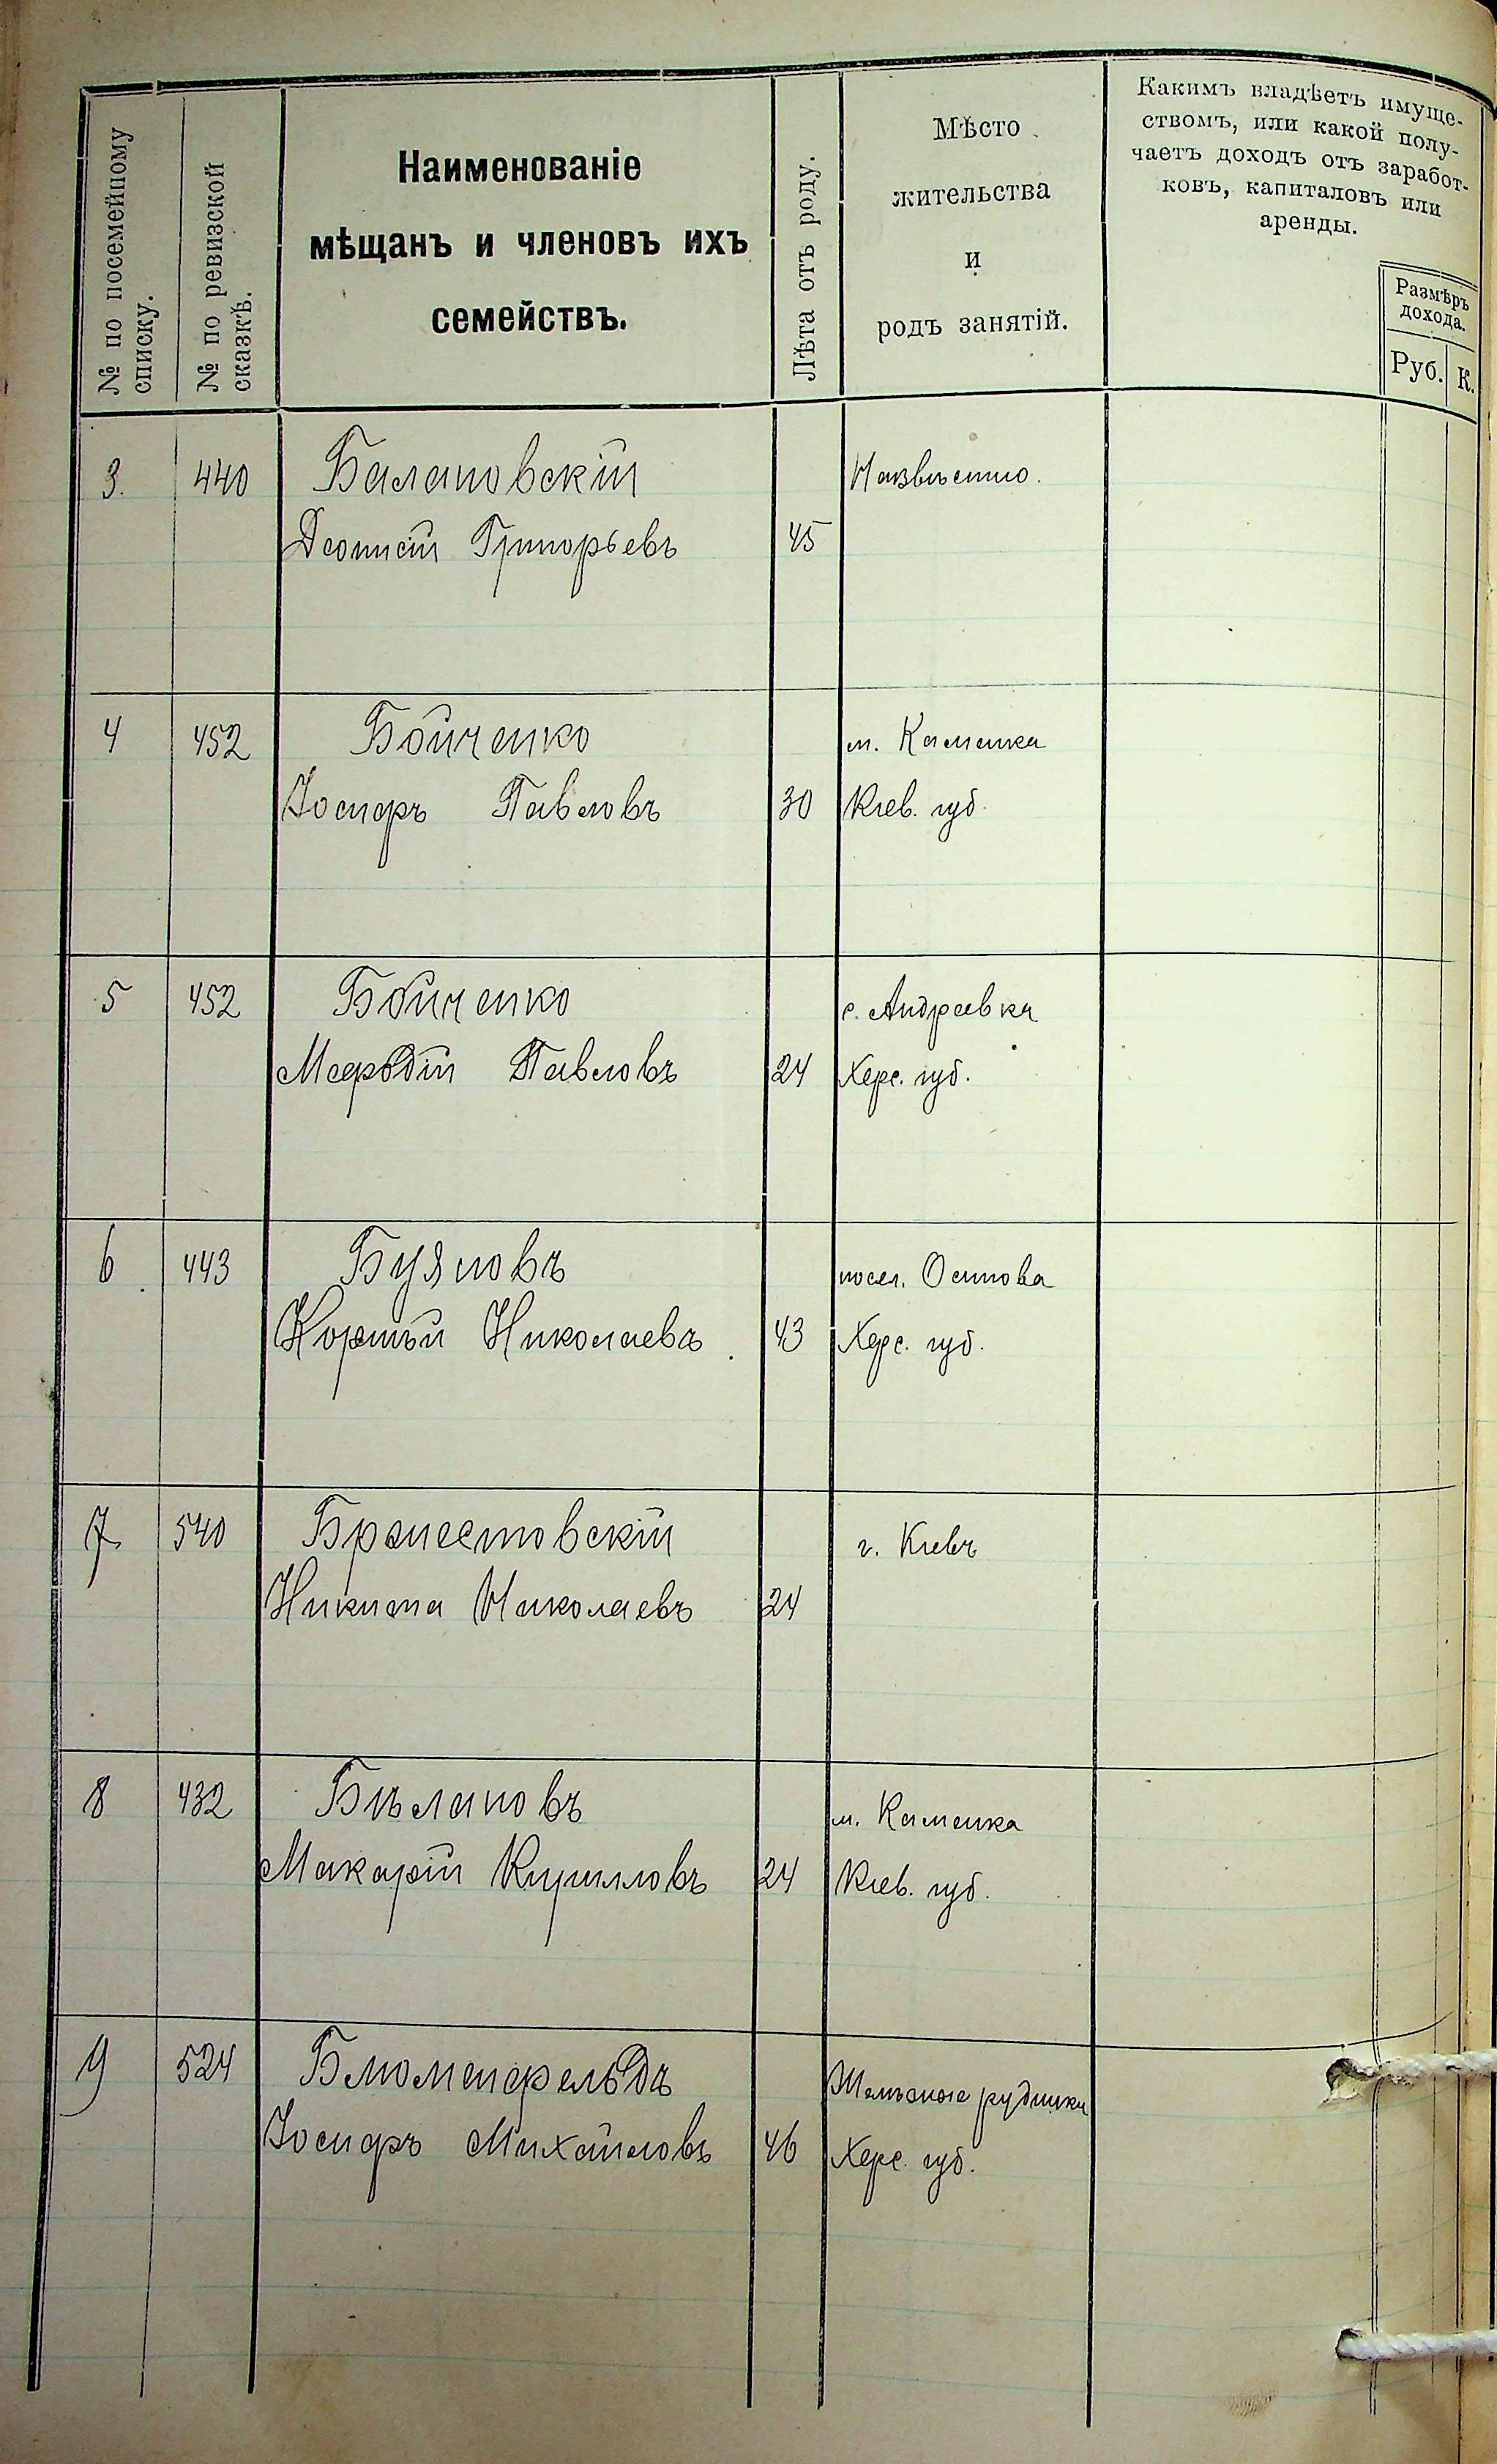 № по посемейному списку.
№ по ревизской сказкѣ.
Наименованіе
мѣщанъ и членовъ ихъ
семействъ.
Лѣта отъ роду.
Мѣсто
жительства
и
родъ занятій.
Какимъ владѣетъ имуще-
ствомъ, или какой полу-
чаетъ доходъ отъ заработ-
ковъ, капиталовъ или
аренды.
Размѣръ
дохода.
Руб. К.
3. 440 Балановскій
Григорьевъ 45
4 452 Бойченко м. Каменка
Іосифъ Павловъ 30 Кіев. губ.
5 452 Бойченко с. Андреевка
Мефодій Павловъ 24 Херс. губ.
6 443 Буяновъ посел.
Корнѣй Николаевъ 43 Херс. губ.
7 540 г. Кіевъ
Никита Николаевъ 24
8 432 Бѣлановъ м. Каменка
Макарій Кирилловъ 24 Кіев. губ.
9 524 Блюменфельдъ рудники
Іосифъ Михайловъ 46 Херс. губ.